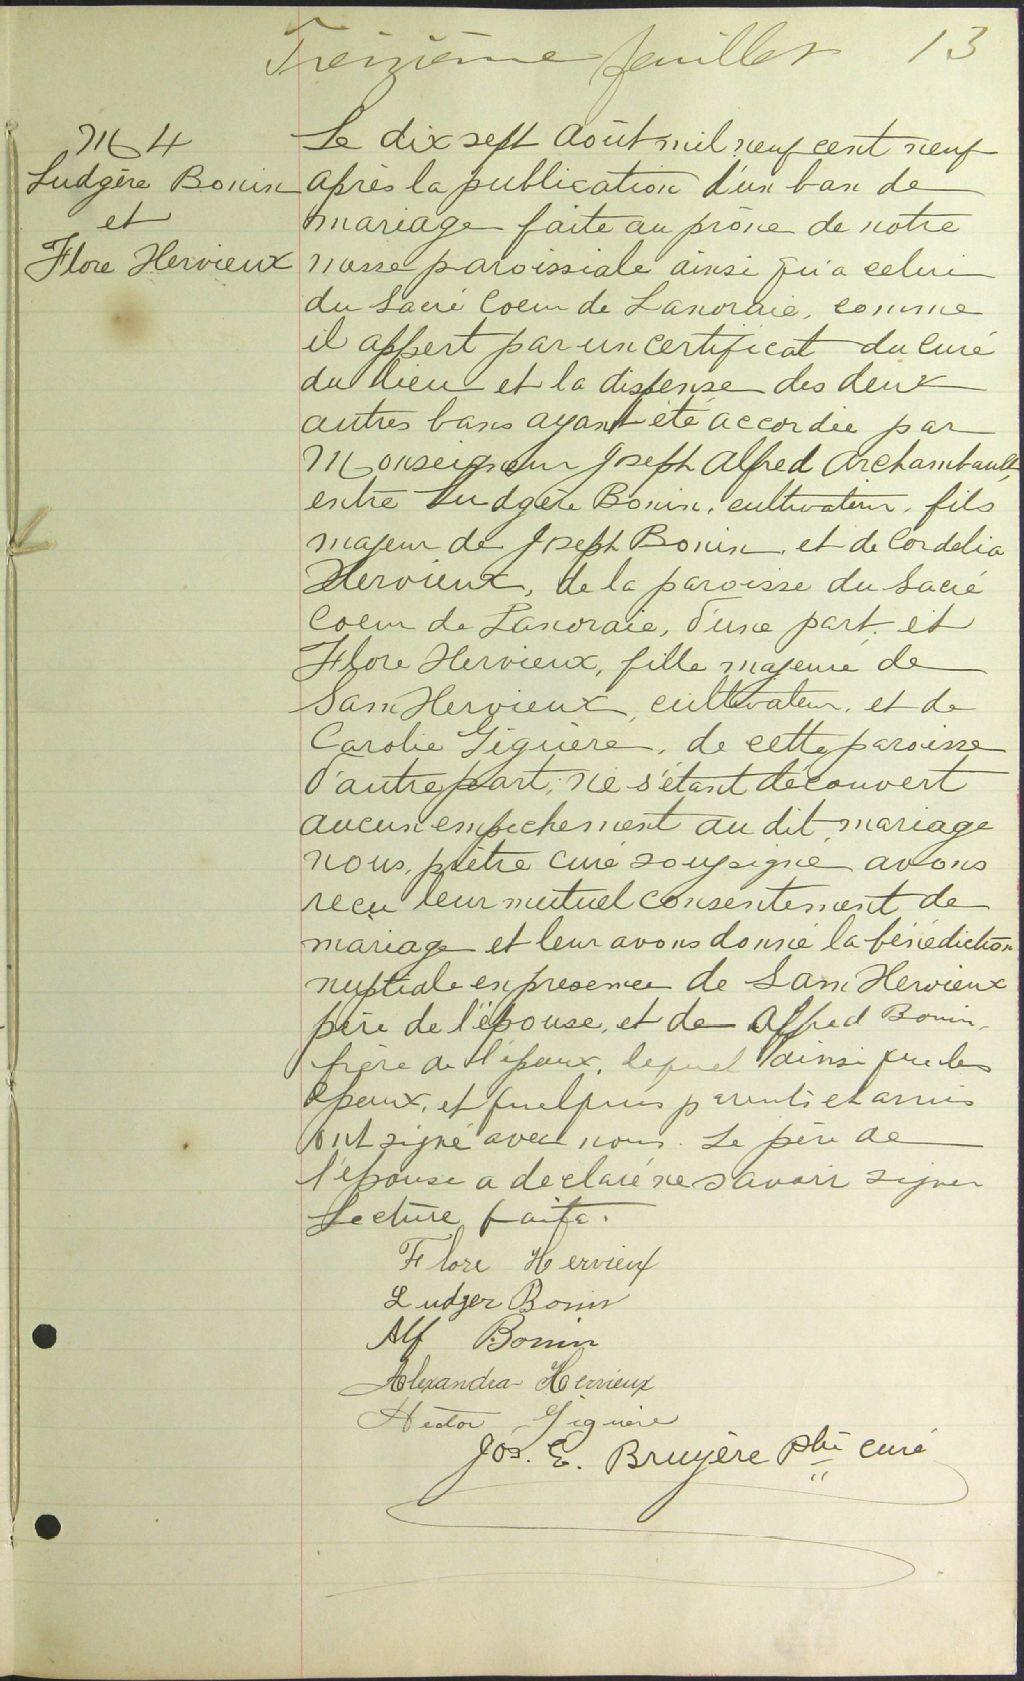 Treizième feuillet 13
M 4
Ludgère Bonin
et
Flore Hervieux
Le dix sept août mil neuf cent neuf
après la publication d'un ban de
mariage faite au prône de notre
messe paroissiale ainsi qu'a celui
du Sacré Coeur de Lanoraie, comme
il appert par un certificat du curé
du lieu et la dispense des deux
autres bans ayant été accordée par
Monseigneur Joseph Alfred Archambault,
entre Ludgère Bonin, cultivateur, fils
majeur de Joseph Bonin et de Cordelia
Hervieux, de la paroisse du Sacré
Coeur de Lanoraie, d'une part, et
Flore Hervieux, fille majeure de
Sam Hervieux, cultivateur, et de
Carolie Giguère, de cette paroisse
d'autre part, ne s'étant découvert
aucun empêchement au dit mariage
nous, prêtre curé soussigné avons
reçu leur mutuel consentement de
mariage et leur avons donné la bénédiction
nuptiale en presence de Sam Hervieux
père de l'épouse, et de Alfred Bonin,
frère de l'époux, lequel ainsi que les
époux, et quelques parents et amis
ont signé avec nous. Le père de
l'épouse a declaré ne savoir signer
Lecture faite.
Flore Hervieux
Ludger Bonin
Alf Bonin
Alexandra Hervieux
Hector Giguère
Jos. E. Bruyère ptre curé